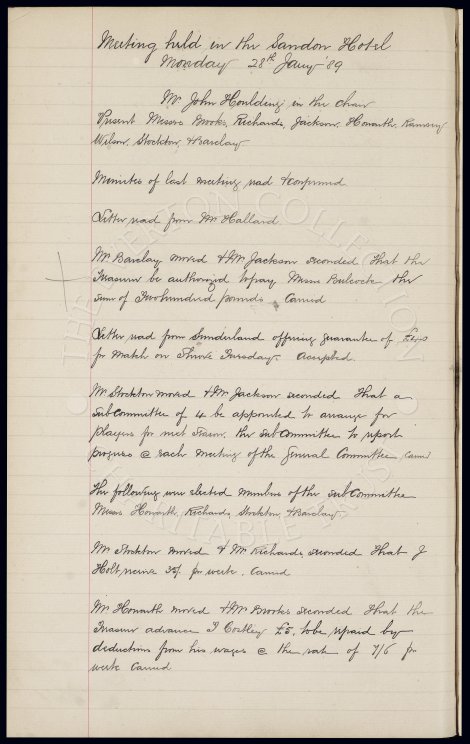 Meeting held in the Sandon Hotel
Monday 28th Jany '89
Mr John Houlding in the chair
Present Messrs Brooks, Richards, Jackson, Howarth, Ramsay
Wilson, Stockton, & Barclay
Minutes of last meeting read & confirmed
Letter read from Mr Hallard
Mr Barclay moved & Mr Jackson seconded that the
Treasurer be authorized to pay Messrs Bulcock the
sum of Two hundred pounds Carried
Letter read from Sunderland offering guarantee of
for match on Shrove Tuesday. Accepted.
Mr Stockton moved & Mr Jackson seconded that a
Subcommittee of 4 be appointed to arrange for
players for next season. the Subcommittee to report
progress @ each meeting of the General Committee Carried
The following were elected members of the Subcommittee
Messrs Howarth, Richards, Stockton, & Barclay.
Mr Stockton moved & Mr Richards seconded that J
Holt, receive per week. Carried
Mr Howarth moved & Mr Brooks seconded that the
Treasurer advance T Costley £5, to be repaid by
deductions from his wages @ the rate of 7/6 per
week Carried
THE EVERTON COLLECTION
CHARITABLE TRUST